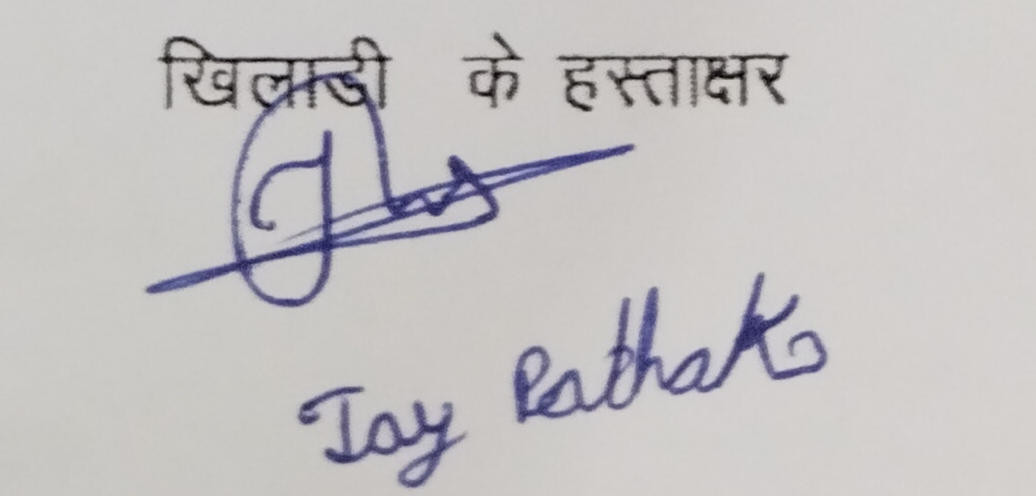 खिलाडी के हस्ताक्षर
Jay Pathak